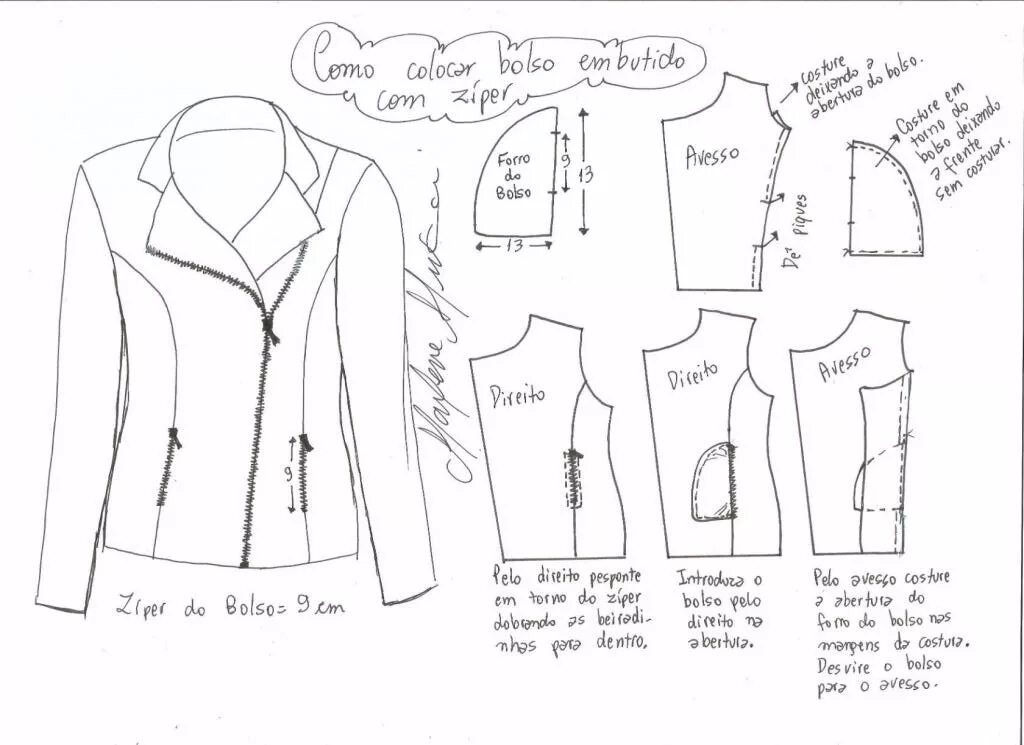 Como colocar bolso embutido
com zíper
Forro
do
Bolso
9
13
13
Avesso
costure
deixando a
abertura do bolso.
Dê piques
Costure em
torno do
bolso deixando
a frente
sem costurar.
Marlene Mukai
9
Zíper do Bolso = 9 cm
Direito
Pelo direito pesponte
em torno do zíper
dobrando as beiradi-
nhas para dentro.
Direito
Introduza o
bolso pelo
direito na
abertura.
Avesso
Pelo avesso costure
a abertura do
forro do bolso nas
margens da costura.
Desvire o bolso
para o avesso.